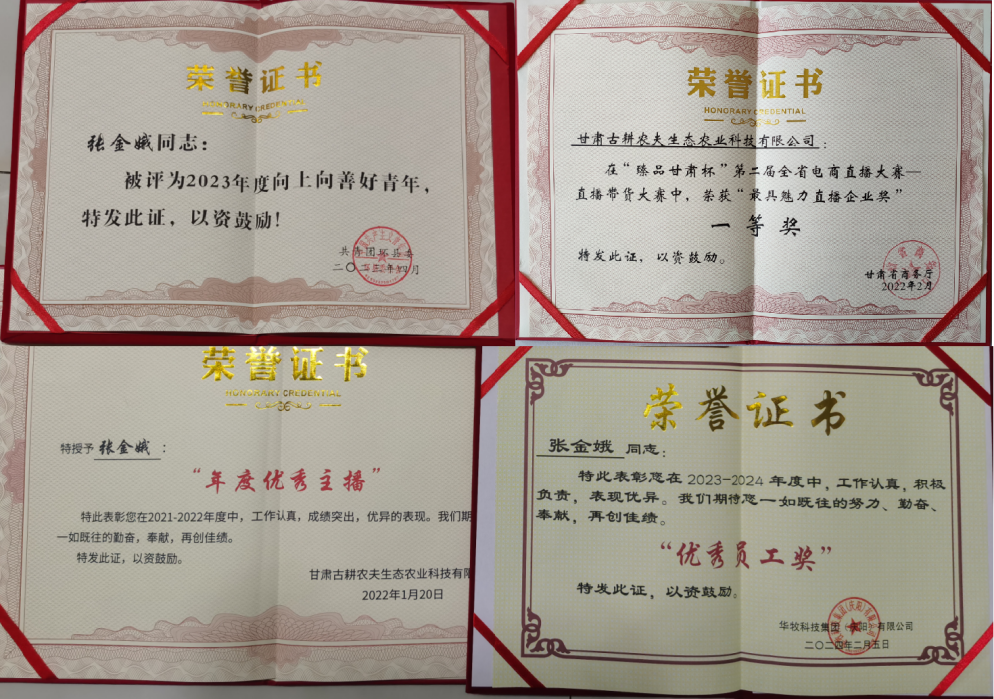 荣誉证书
HONORARY CREDENTIAL
张金娥同志：
被评为2023年度向上向善好青年，
特发此证，以资鼓励！
共青团环县委
二〇二三年四月
荣誉证书
HONORARY CREDENTIAL
甘肃古耕农夫生态农业科技有限公司：
在“臻品甘肃杯”第二届全省电商直播大赛—
直播带货大赛中，荣获“最具魅力直播企业奖”
一等奖
特发此证，以资鼓励。
甘肃省商务厅
2022年2月
荣誉证书
HONORARY CREDENTIAL
特授予 张金娥 ：
“年度优秀主播”
特此表彰您在2021-2022年度中，工作认真，成绩突出，优异的表现。我们期
一如既往的勤奋，奉献，再创佳绩。
特发此证，以资鼓励。
甘肃古耕农夫生态农业科技有限
2022年1月20日
荣誉证书
张金娥 同志：
特此表彰您在 2023-2024 年度中，工作认真，积极
负责，表现优异。我们期待您一如既往的努力、勤奋、
奉献，再创佳绩。
“优秀员工奖”
特发此证，以资鼓励。
华牧科技集团（庆阳）有限公司
二〇二四年二月五日